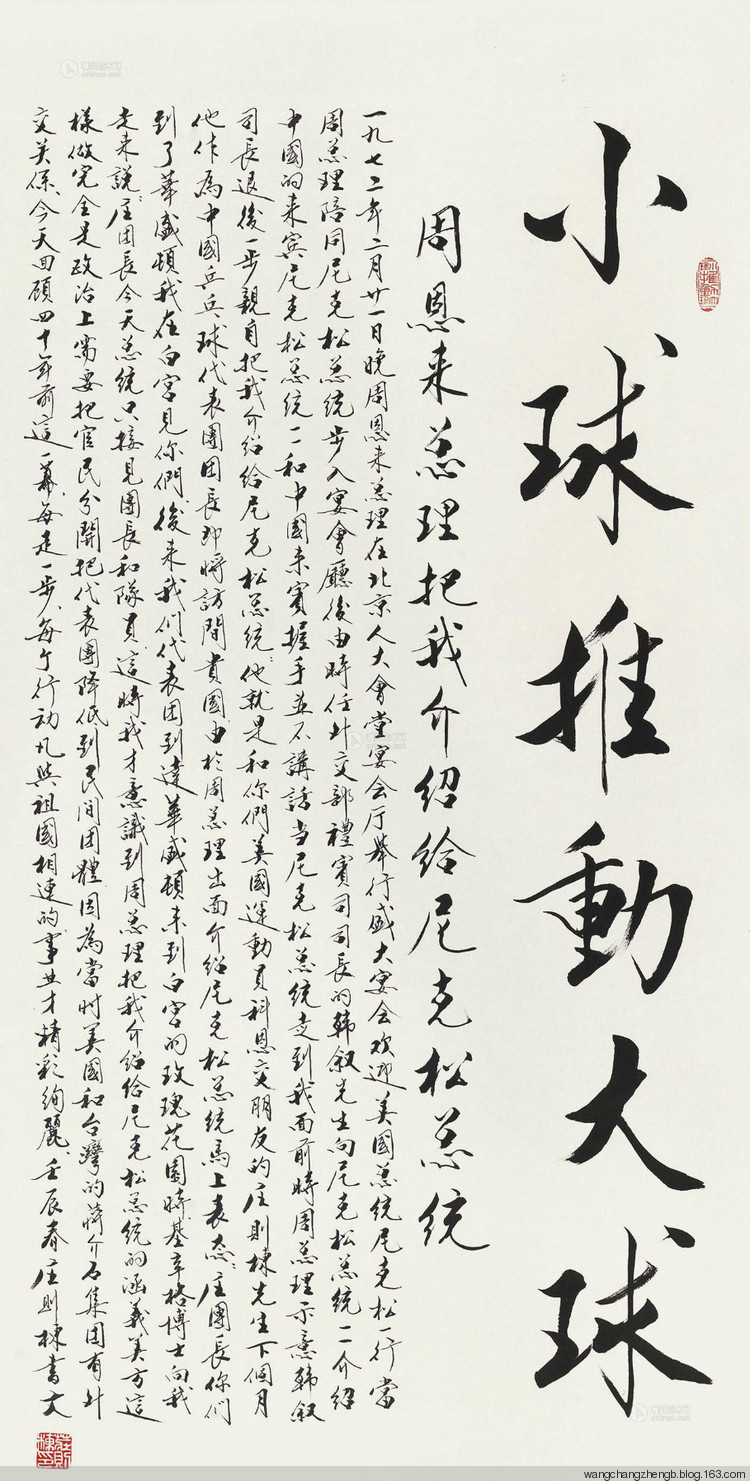 小球推動大球
周恩来总理把我介绍给尼克松总统
一九七二年二月廿一日晚周恩来总理在北京人大會堂宴会厅舉行盛大宴会欢迎美国总统尼克松一行當
周总理陪同尼克松总统步入宴會廳後由時任外交部禮賓司司長的韩叙先生向尼克松总统一一介绍
中國的来宾尼克松总统一一和中國来賓握手並不講話当尼克松总统走到我面前時周总理示意韩叙
司長退後一步親自把我介绍给尼克松总统:他就是和你們美國運動員科恩交朋友的庄则棟先生下個月
他作為中國乒乓球代表團团長即将訪問貴國由於周总理出面介绍尼克松总统馬上表态:庄團長你們
到了華盛頓我在白宫見你們後来我们代表团到達華盛頓来到白宫的玫瑰花園時基辛格博士向我
走来說:庄团長今天总统只接見團長和隊員這時我才意識到周总理把我介绍给尼克松总统的涵義美方這
樣做完全是政治上需要把官民分開把代表團降低到民间团體因為當时美國和台灣的蒋介石集团有外
交关係今天回顾四十年前這一幕每走一步每个行动凡與祖國相連的事业才精彩绚麗壬辰春庄则棟書文
wangchangzhengb.blog.163.com